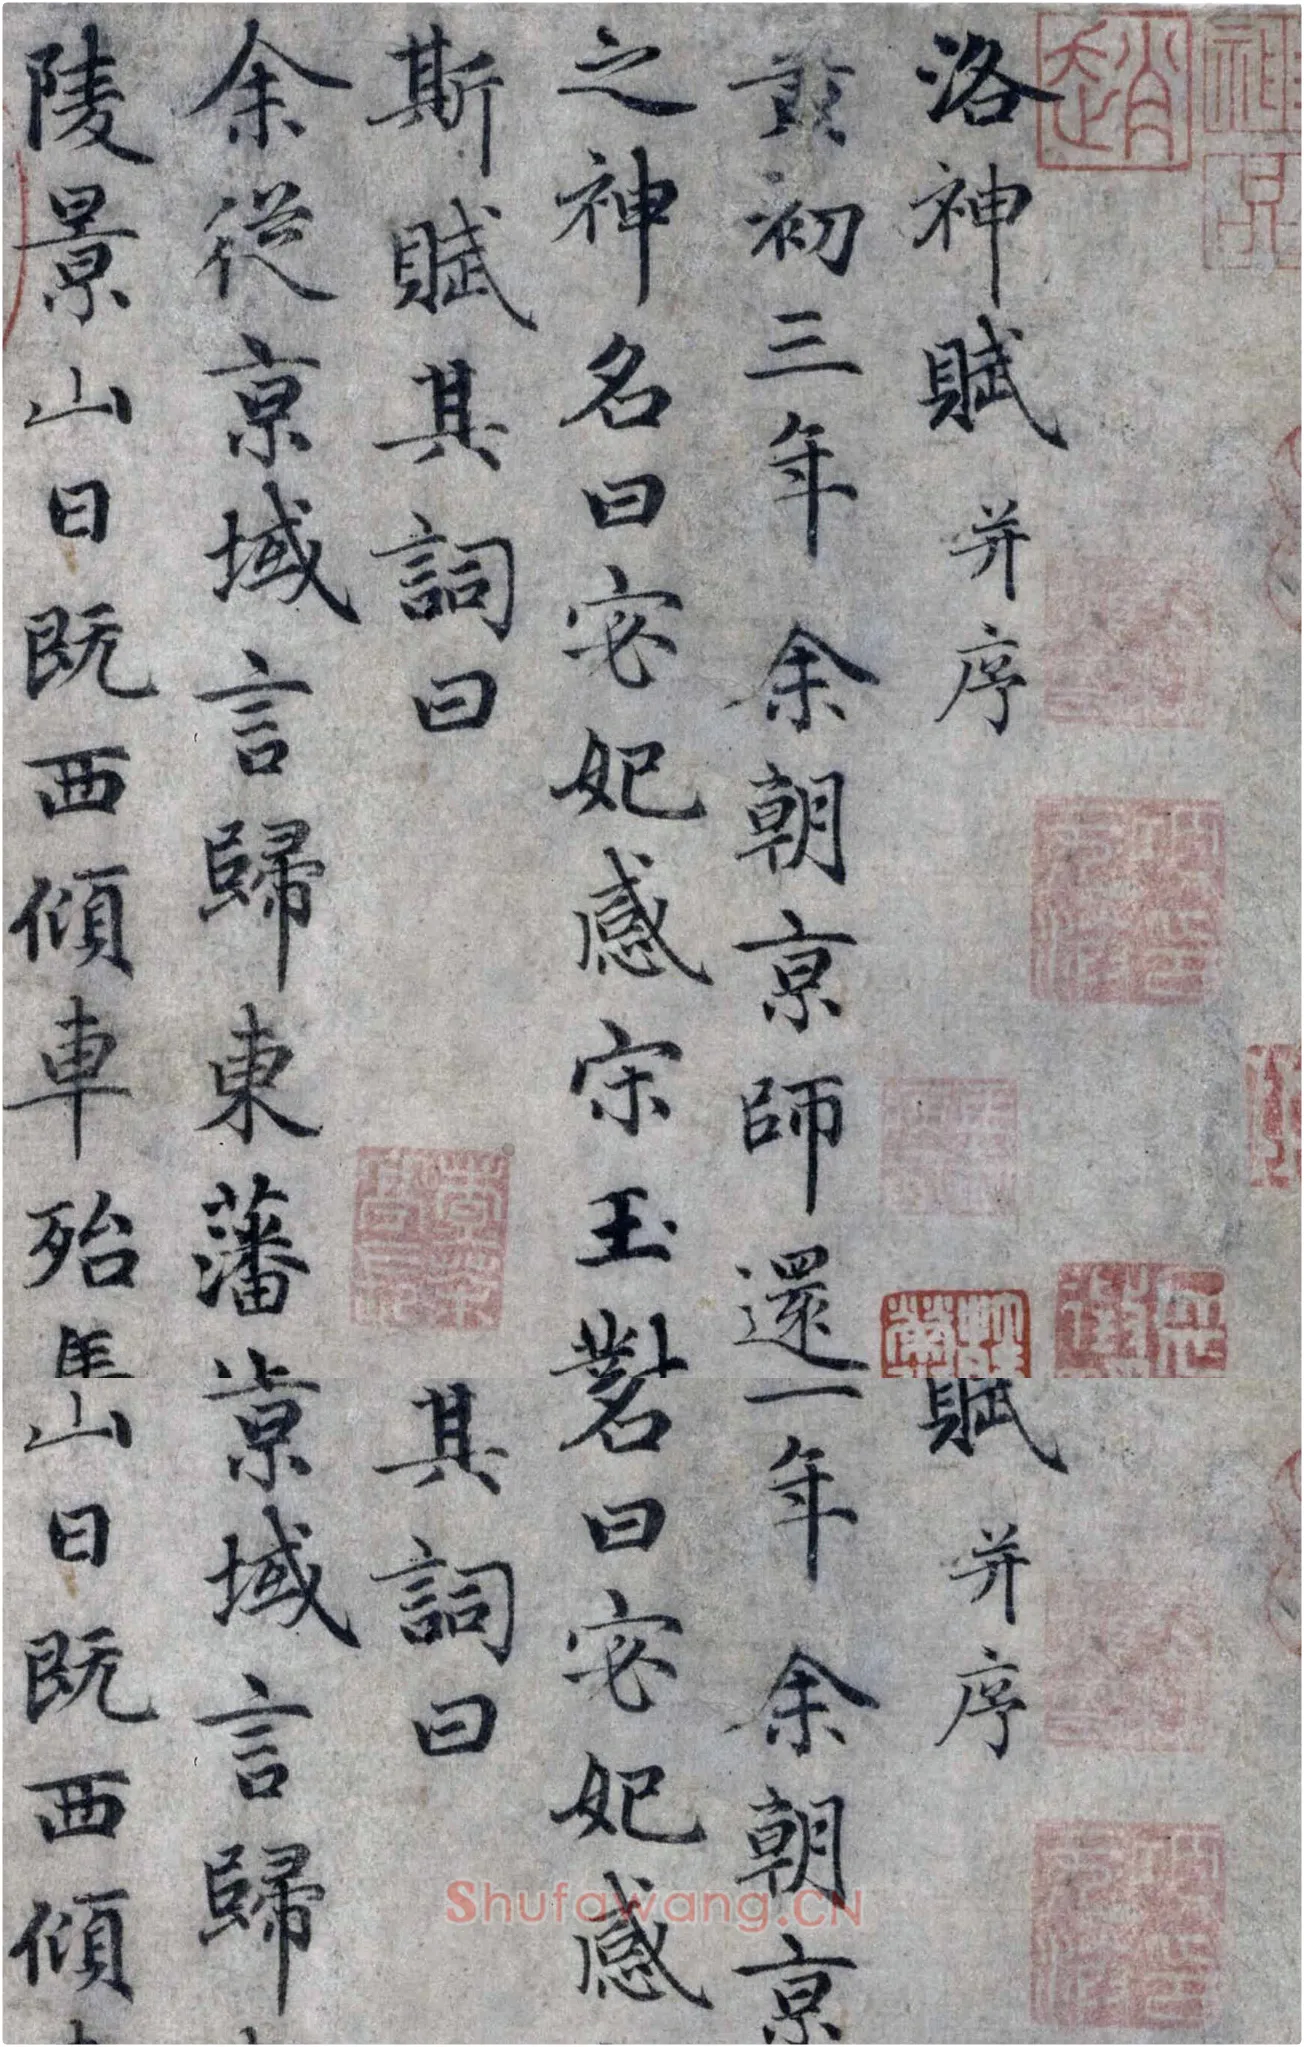 洛神賦 并序
黃初三年余朝京師還
之神名曰宓妃感宋玉對
斯賦其詞曰
余從京域言歸東藩
陵景山日既西傾車殆馬
賦 并序
年余朝京
名曰宓妃感
其詞曰
京域言歸
山日既西傾
Shufawang.CN